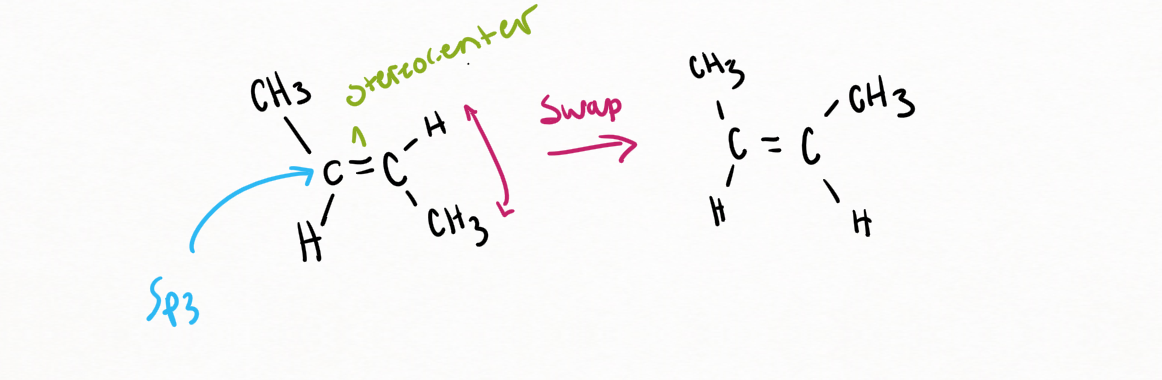 stereocenter
CH3
H
Swap
CH3
CH3
C=C
C=C
H
CH3
H
H
Sp3